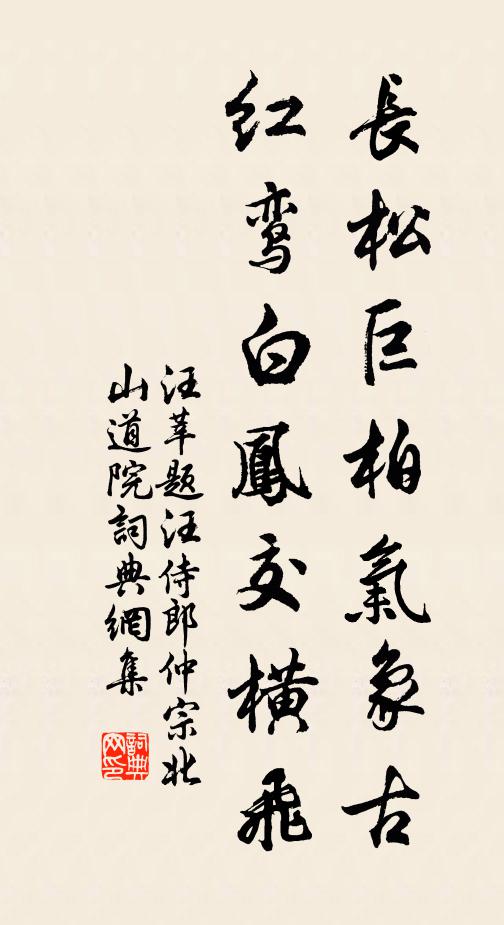 長松巨柏氣象古
红鸾白鳳交橫飛
汪莘题汪侍郎仲宗北
山道院詞典網集
詞典
网印